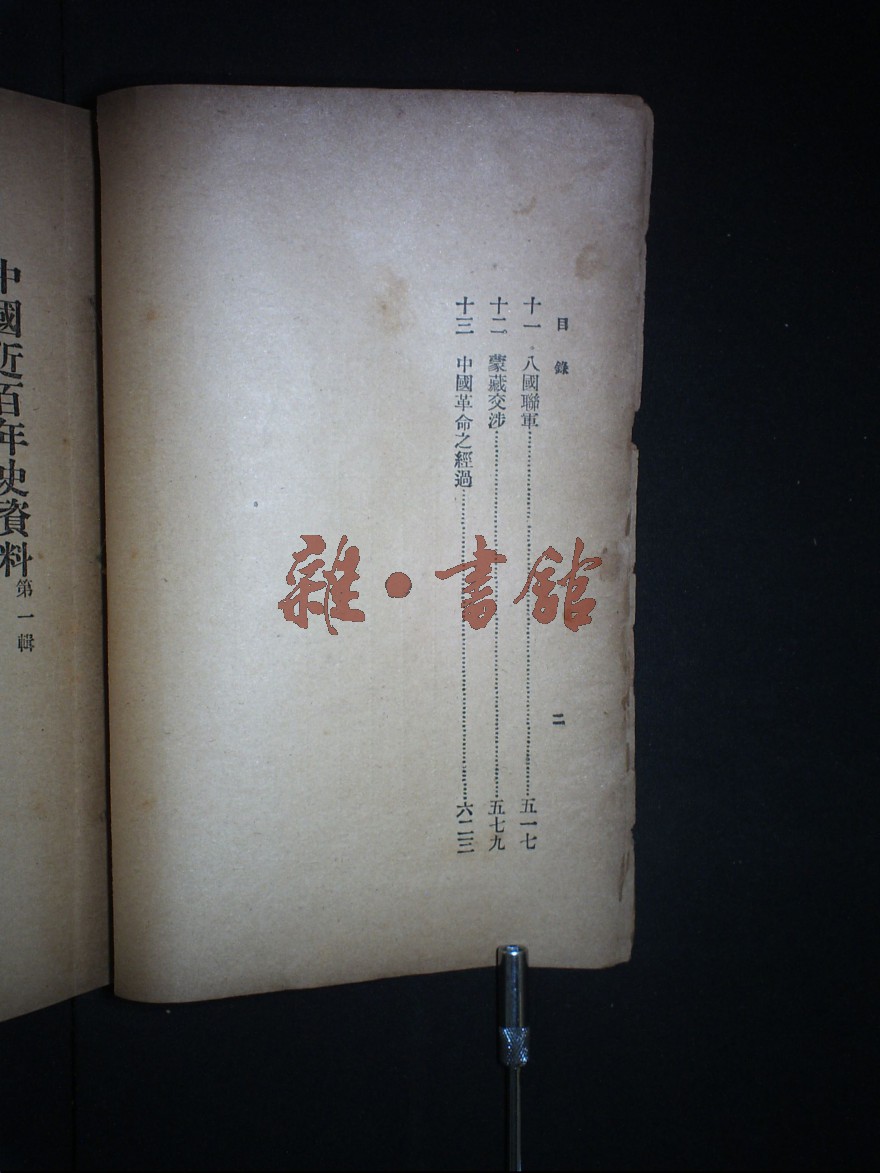 目錄 二
十一 八國聯軍……五一七
十二 蒙藏交涉……五七九
十三 中國革命之經過……六二三
中國近百年史資料 第一輯
雜·書館